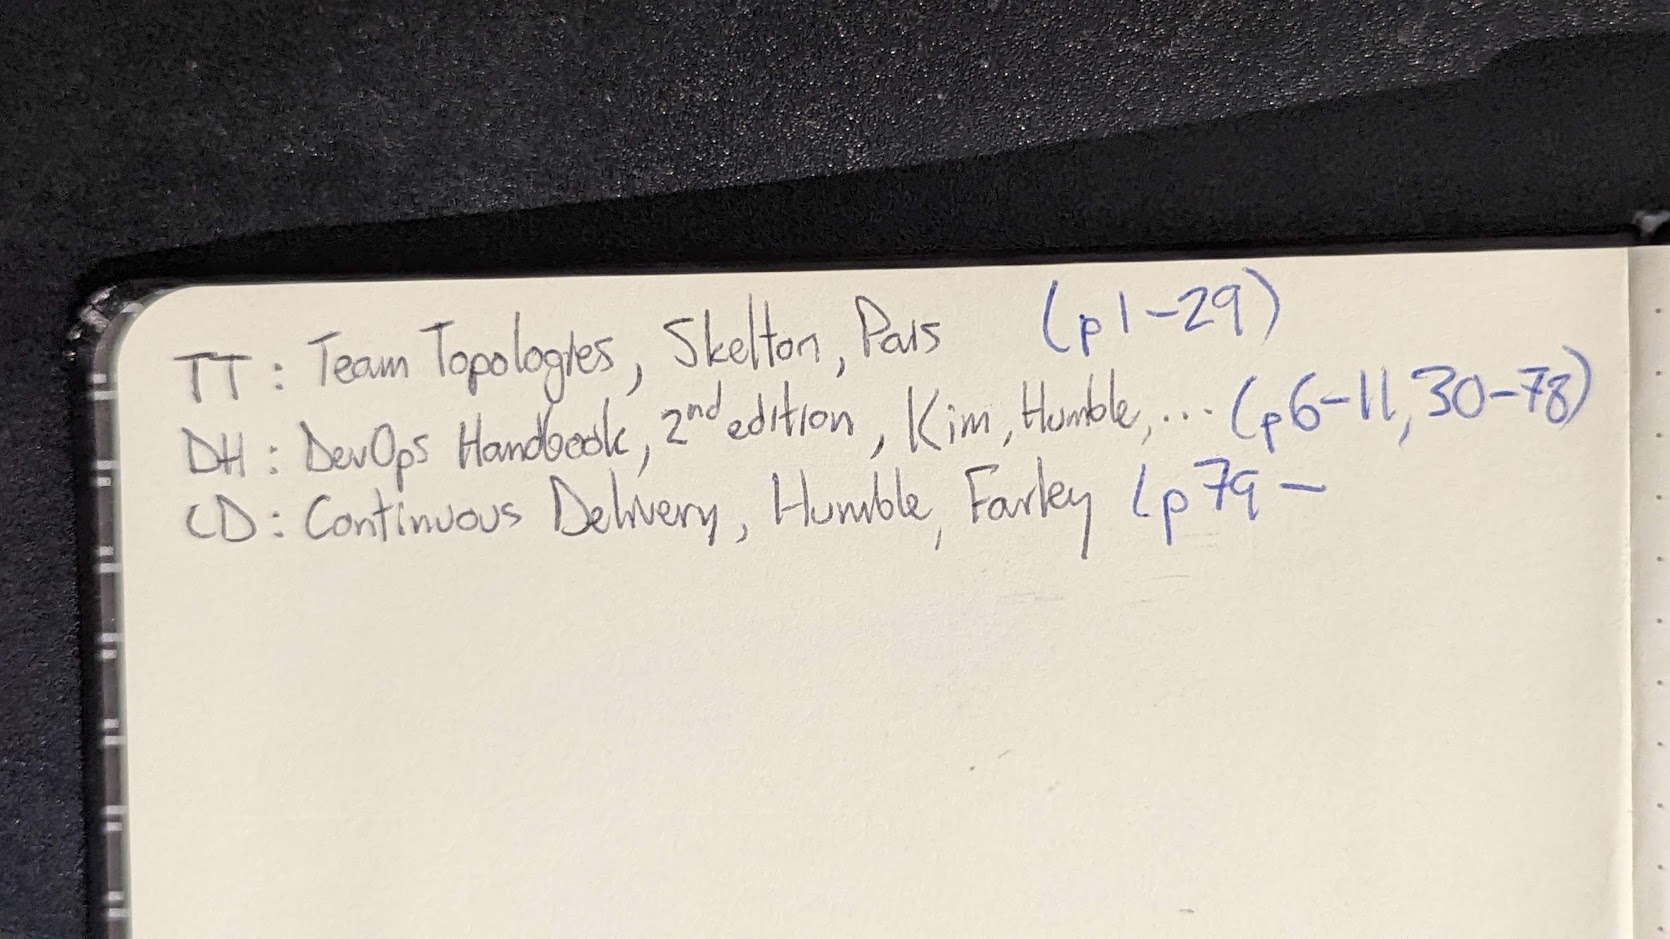 TT: Team Topologies, Skelton, Pais (p1-29)
DH: DevOps Handbook, 2nd edition, Kim, Humble, ... (p6-11, 30-78)
CD: Continuous Delivery, Humble, Farley (p79-